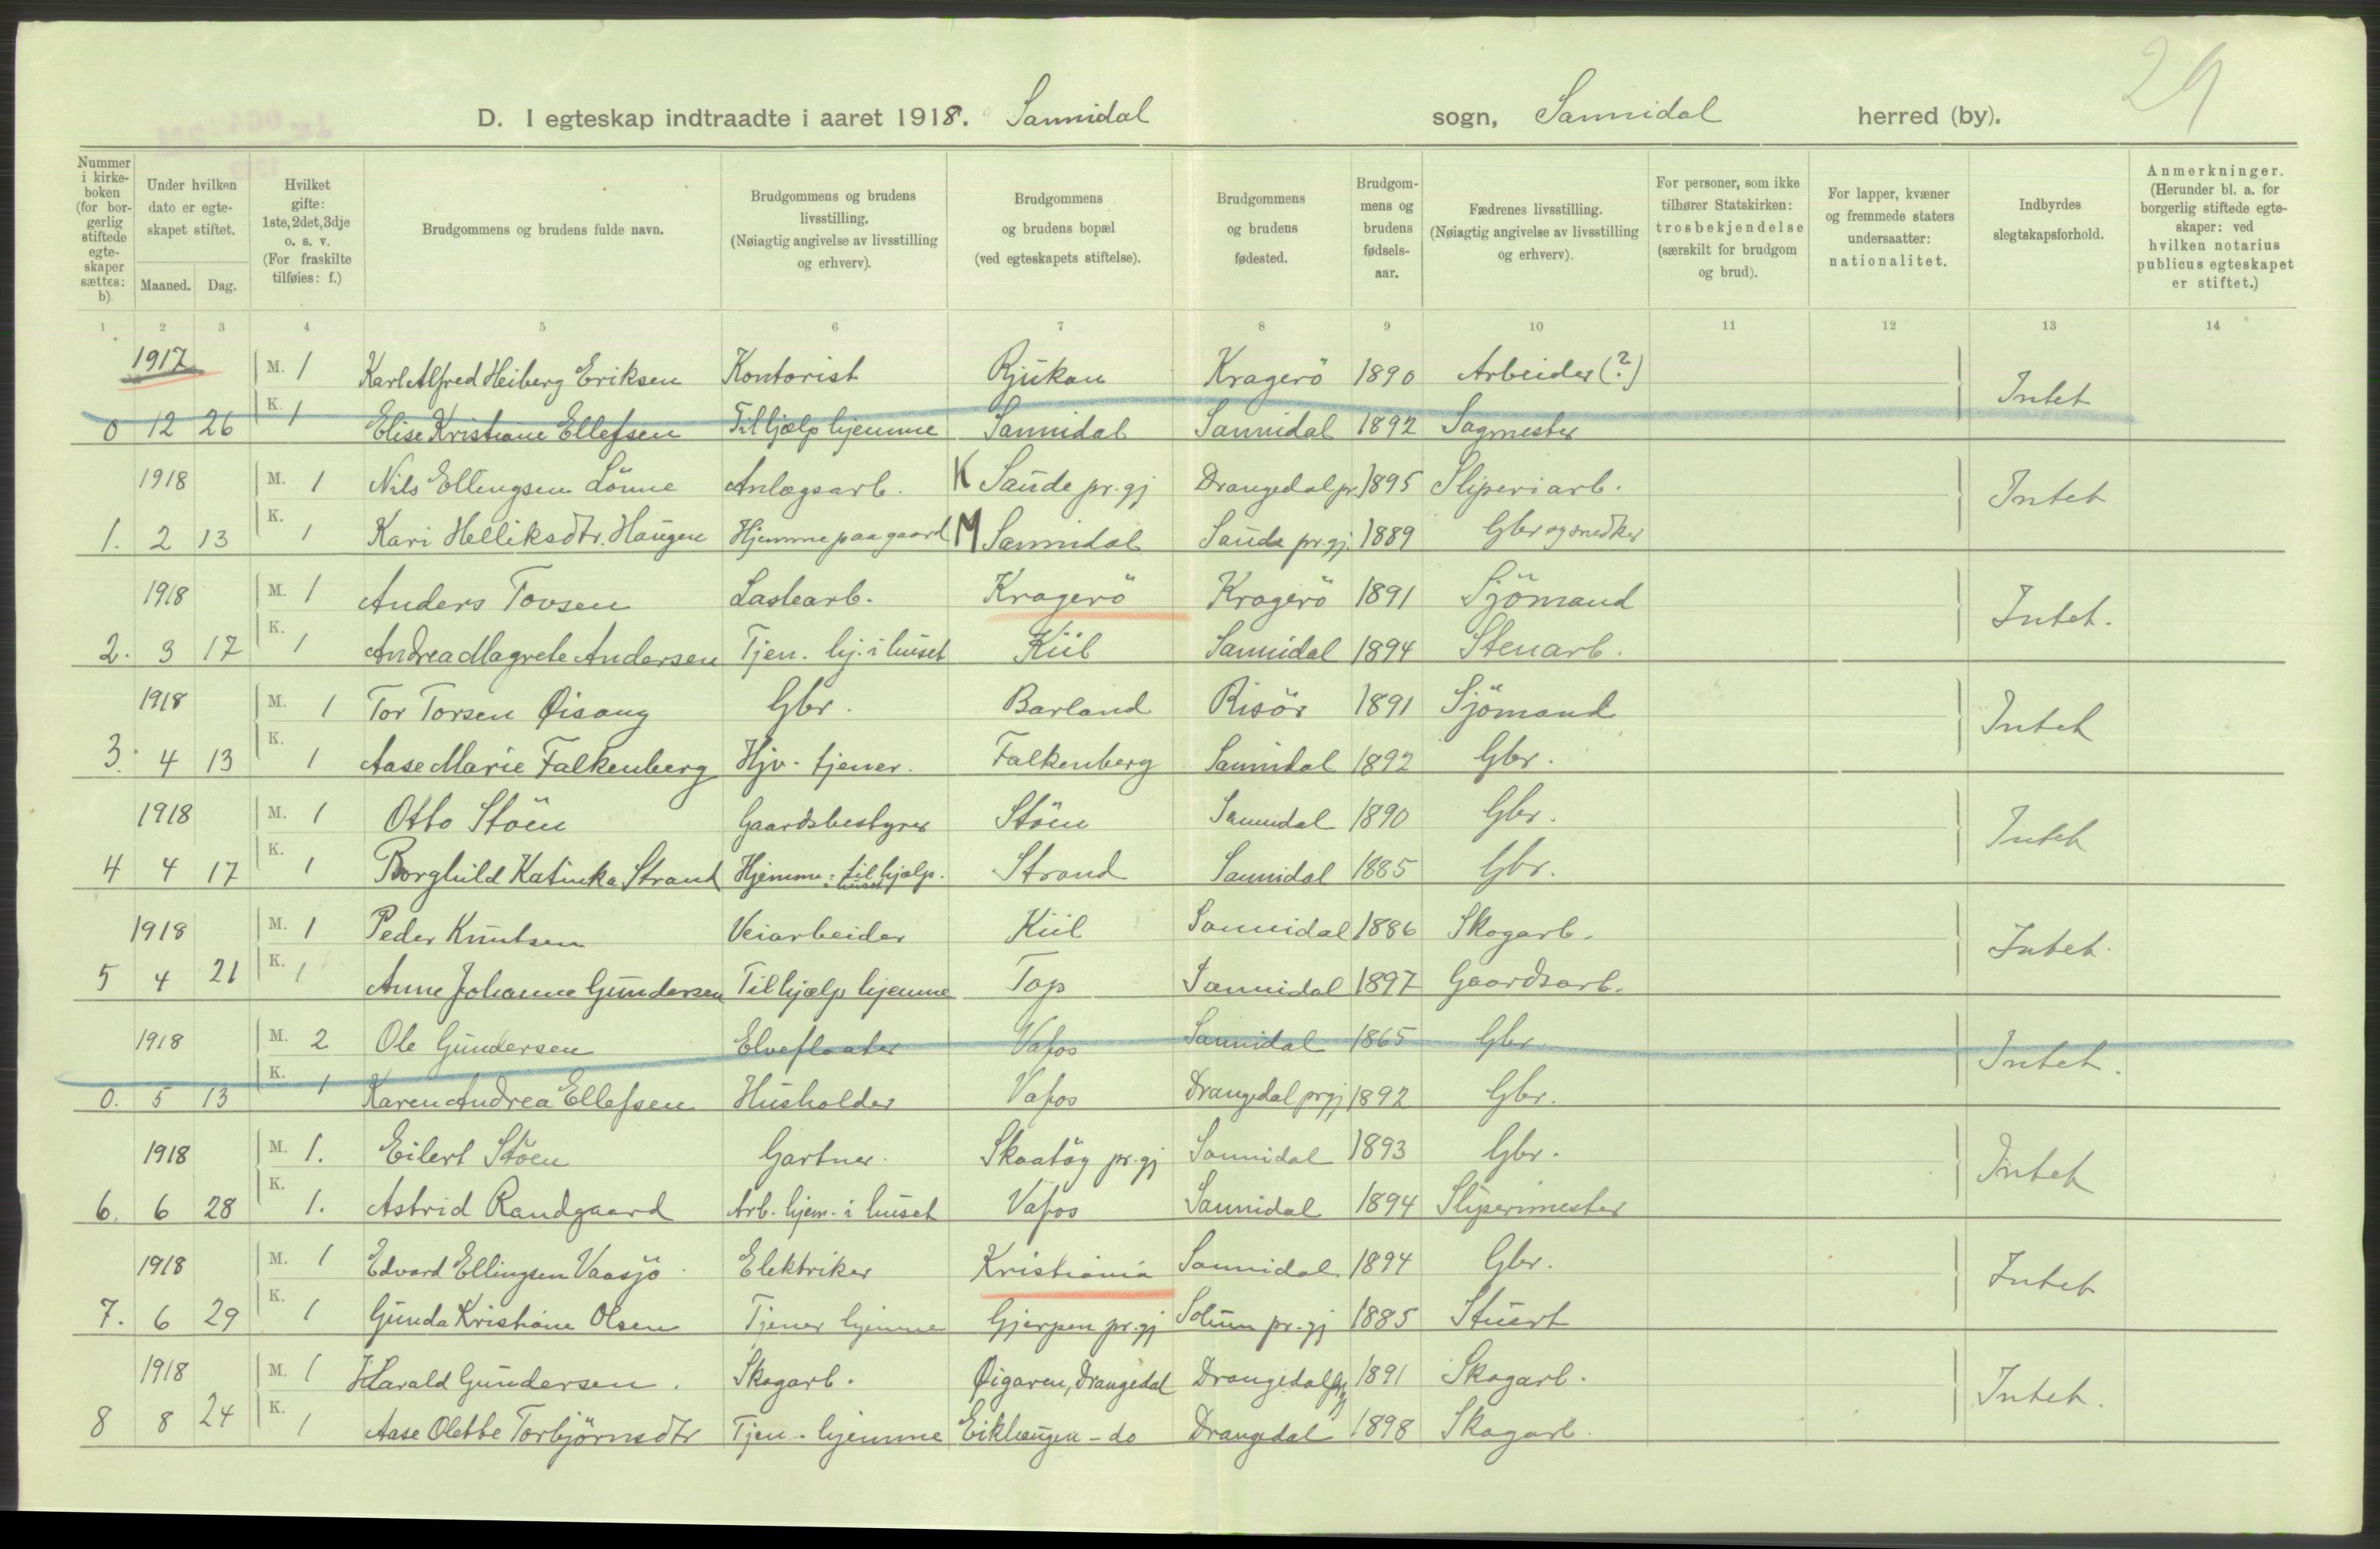 29
D. I egteskap indtraadte i aaret 1918. Sannidal sogn, Sannidal herred (by).
Nummer i kirke-boken (for bor-gerlig stiftede egte-skaper sættes: b).
Under hvilken dato er egte-skapet stiftet.
Maaned. Dag.
Hvilket gifte: 1ste, 2det, 3dje o. s. v. (For fraskilte tilføies: f.)
Brudgommens og brudens fulde navn.
Brudgommens og brudens livsstilling. (Nøiagtig angivelse av livsstilling og erhverv).
Brudgommens og brudens bopæl (ved egteskapets stiftelse).
Brudgommens og brudens fødested.
Brudgom-mens og brudens fødsels-aar.
Fædrenes livsstilling. (Nøiagtig angivelse av livsstilling og erhverv).
For personer, som ikke tilhører Statskirken: trosbekjendelse (særskilt for brudgom og brud).
For lapper, kvæner og fremmede staters undersaatter: nationalitet.
Indbyrdes slegtskapsforhold.
Anmerkninger. (Herunder bl. a. for borgerlig stiftede egte-skaper: ved hvilken notarius publicus egteskapet er stiftet.)
1 2 3 4 5 6 7 8 9 10 11 12 13 14
1917 M. 1 Karl Alfred Heiberg Eriksen Kontorist Rjukan Kragerö 1890 Arbeider (?) Intet
0 12 26 K. 1 Elise Kristiane Ellefsen Tilhjælp hjemme Sannidal Sannidal 1892 Sagmester
1918 M. 1 Nils Ellingsen Lönne Anlægsarb. K Saude pr.gj Drangedal pr. 1895 Sliperiarb. Intet
1. 2 13 K. 1 Kari Helliksdtr. Haugen Hjemme paa gaard M Sannidal Saude pr.gj. 1889 Gbr og snedker
1918 M. 1 Anders Tovsen Lastearb. Kragerö Kragerö 1891 Sjömand Intet.
2. 3 17 K. 1 Andrea Magrete Andersen Tjen. hj. i huset Kiil Sannidal 1894 Stenarb.
1918 M. 1 Tor Torsen Øisang Gbr. Barland Risör 1891 Sjömand Intet
3. 4 13 K. 1 Aase Marie Falkenberg Hjv. tjener. Falkenberg Sannidal 1892 Gbr.
1918 M. 1 Otto Stöen Gaardsbestyrer Stöen Sannidal 1890 Gbr. Intet
4 4 17 K. 1 Borghild Katinka Strand Hjemme: til hjælp. i huset Strand Sannidal 1885 Gbr.
1918 M. 1 Peder Knutsen Veiarbeider Kiil Sannidal 1886 Skogarb. Intet.
5 4 21 K. 1 Anne Johanne Gundersen Tilhjælp hjemme Tap Sannidal 1897 Gaardsarb.
1918 M. 2 Ole Gundersen Elvefloater Vafos Sannidal 1865 Gbr. Intet.
0. 5 13 K. 1 Karen Andrea Ellefsen Husholder Vafos Drangedal prgj 1892 Gbr.
1918 M. 1. Eilert Stöen Gartner. Skaatöy pr.gj Sannidal 1893 Gbr. Intet
6. 6 28 K. 1. Astrid Randgaard Arb. hjem. i huset Vafos Sannidal 1894 Slipermester
1918 M. 1 Edvard Ellingsen Vaasjö Elektriker Kristiania Sannidal 1894 Gbr. Intet
7. 6 29 K. 1 Gunda Kristiane Olsen Tjener hjemme Gjerpen pr.gj Solum pr.gj 1885 Stuert
1918 M. 1 Harald Gundersen. Skogarb. Øigaren, Drangedal Drangedal prgj 1891 Skogarb. Intet.
8 8 24 K. 1 Aase Olette Torbjörnsdtr Tjen. hjemme Eikhaugen - do Drangedal 1898 Skogarb.